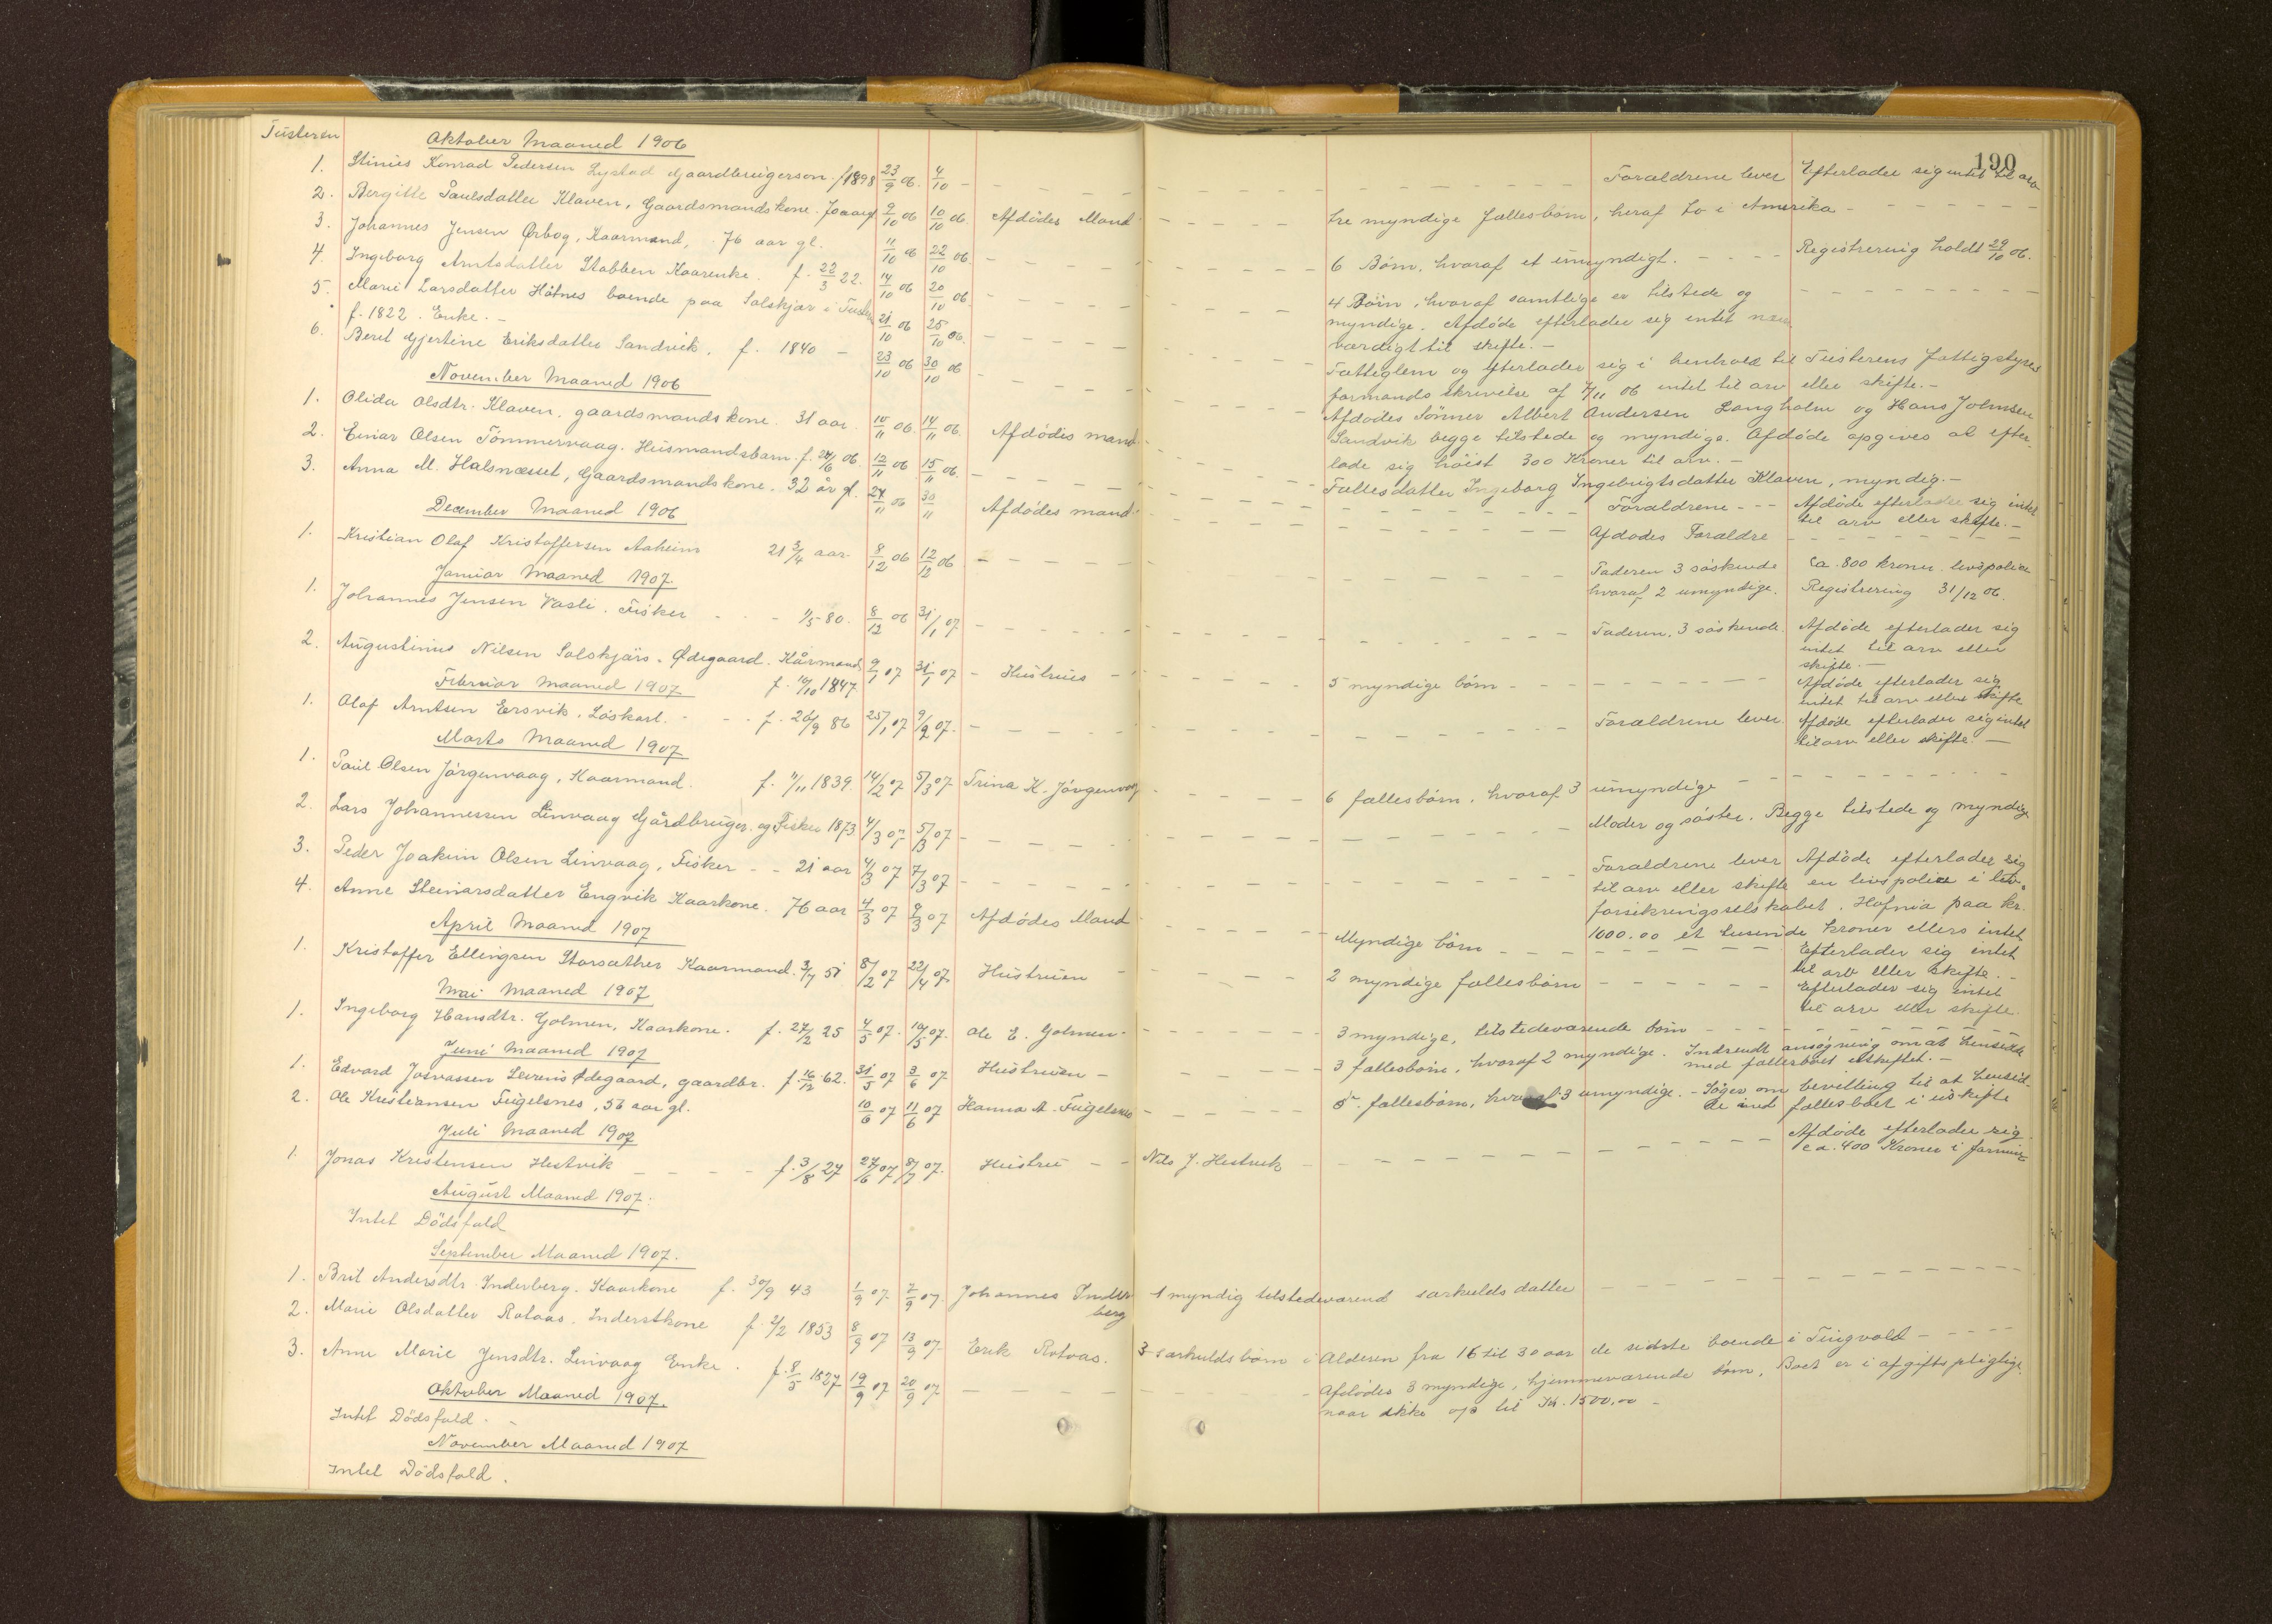 190
Tusteren
Oktober Maaned 1906
1. Stinius Konrad Pedersen Lystad Gaardbrugerson. f 1898 23/9 06. 4/10 - Forældrene lever Efterlader sig intet til arv
2. Bergitte Paulsdatter Klaven, Gaardsmandskone. 70 aar gl 9/10 06 10/10 06 Afdødes Mand - tre myndige fællesbørn, heraf to i Amerika -
3. Johannes Jensen Ørbog, Kaarmand, 76 aar gl. 11/10 06 22/10 06. - 6 Børn, hvoraf et umyndigt. - Registrering holdt 29/10 06.
4. Ingeborg Arntsdatter Stabben Kaarenke. f. 22/3 22. 14/10 06 20/10 06. - 4 Børn, hvoraf samtlige er tilstede og
myndige. Afdøde efterlader sig intet
værdigt til skifte. -
5. Marie Larsdatter Hötnes boende paa Solskjær i Tusteren
f. 1822. Enke. - 21/10 06 25/10 06. - Fattiglem og efterlader sig i henhold til Tusterens fattigstyres
formands skrivelse af 7/11 06 intet til arv eller skifte. -
6. Beret Gjertine Eriksdatter Sandvik, f. 1840 - 23/10 06 30/10 06 - Afdødes Sønner Albert Andersen Langholm og Hans Johnsen
Sandvik begge tilstede og myndige. Afdøde opgives at efter
lade sig høist 300 Kroner til arv. -
November Maaned 1906
1. Olida Olsdtr. Klaven, gaardsmandskone. 31 aar. 10/11 06. 14/11 06. Afdödes mand - Fællesdatter Ingeborg Ingebrigtsdatter Klaven, myndig. -
2. Einar Olsen Tömmervaag. Husmandsbarn. f. 24/6 06. 12/11 06 15/11 06. - Forældrene - - - Afdøde efterlader sig intet
til arv eller skifte. -
3. Anna M. Halsnæsset, Gaardsmandskone. 32 år gl. 24/11 06 30/11 Afdødes mand - Afdødes Forældre -
December Maaned 1906
1. Kristian Olaf Kristoffersen Aaheim 21 3/4 aar. 8/12 06 12/12 06 - Faderen 3 söskende ca. 800 kroner livspolice
hvoraf 2 umyndige. Registrering 31/12 06.
Januar Maaned 1907.
1. Johannes Jensen Vasli. Fisker - 11/5 80. 8/12 06 31/1 07 - Faderen, 3 söskende. Afdøde efterlader sig
intet til arv eller
skifte. -
2. Augustinus Nilsen Solskjärs-Ødegaard. Kårmand
f. 14/10 1847. 9/1 07 31/1 07 - Hustrues - 5 myndige børn - Afdøde efterlader sig
intet til arv eller skifte
Februar Maaned 1907
1. Olaf Arntsen Ersvik, Löskarl. - f. 26/9 86 25/1 07 9/2 07. - Forældrene lever. Afdøde efterlader sig intet
til arv eller skifte. -
Marts Maaned 1907
1. Paul Olsen Jörgenvaag, Kaarmand. f. 11/11 1839. 14/2 07 5/3 07 Trina K. Jörgenvaag - 6 fællesbørn, hvoraf 3 umyndige -
2. Lars Johannessen Linvaag Gjårdbruger og Fisker 1873 4/3 07 5/3 07 - Moder og söster. Begge tilstede og myndige
3. Peder Joakim Olsen Linvaag, Fisker - - 21 aar 4/3 07 7/3 07 - Forældrene lever Afdøde efterlader sig
til arv eller skifte en livspolice i liv-
forsikringsselskabet. Hafnia paa kr.
1000.00 et tusinde kroner ellers intet
4. Anne Steinarsdatter Engvik Kaarkone. 76 aar 4/3 07 9/3 07 Afdødes Mand - Myndige børn - Efterlader sig intet
til arv eller skifte. -
April Maaned 1907
1. Kristoffer Ellingsen Storsæther Kaarmand. 3/7 51 8/2 07 22/4 07. Hustruen - 2 myndige fællesbørn - Efterlader sig intet
til arv eller skifte.
Mai Maaned 1907
1. Ingeborg Hansdtr. Golmen, Kaarkone. f. 27/2 25 4/5 07. 10/5 07. Ole E. Golmen. - 3 myndige, tilstedeværende børn -
Juni Maaned 1907
1. Edvard Josvassen Leirens Ødegaard, gaardbr. f. 16/12 62. 31/5 07 3/6 07 Hustruen - 3 fællesbørn, hvoraf 2 myndige. Indsendt ansøgning om at hensidde
med fællesboet uskiftet. -
2. Ole Kristiansen Fugelsnes, 56 aar gl. 10/6 07 11/6 07 Hanna A. Fugelsnes - 5 fællesbørn, hvoraf 3 umyndige. - Søger om bevilling til at hensid-
de med fællesboet i uskifte
Juli Maaned 1907
1. Jonas Kristensen Hestvik - f. 3/8 27 27/6 07 8/7 07. Hustru - - Nils J. Hestvik - Afdøde efterlader sig
ca. 400 Kroner i formue
August Maaned 1907.
Intet Dödsfald
September Maaned 1907.
1. Brit Andersdtr. Inderberg. Kaarkone f. 30/9 43 1/9 07 7/9 07. Johannes Inder
berg 1 myndig tilstedeværend særkulds datter -
2. Marie Olsdatter Rotaas. Inderstkone f. 2/2 1853 8/9 07 13/9 07. Erik Rotaas. 3 særkuldsbørn i Alderen fra 16 til 30 aar de sidste boende i Tingvold -
3. Anne Marie Jensdtr. Linvaag Enke. f. 8/5 1827 19/9 07 20/9 07 - Afdødes 3 myndige, hjemmeværende börn. Boet er i afgiftspligtig.
naar ikke op til Kr. 1500,00 -
Oktober Maaned 1907.
Intet Dödsfald. -
November Maaned 1907
Intet Dödsfald.